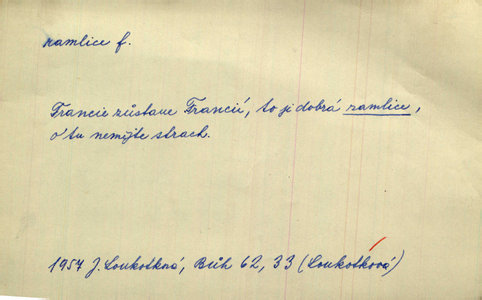 ramlice f.
Francie zůstane Francií, to je dobrá ramlice,
o tu nemějte strach.
1957 J. Loukotková, Bůh 62, 33 (Loukotková)